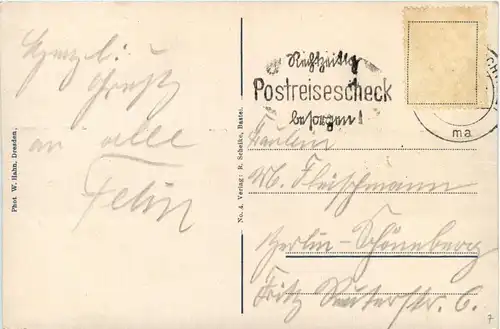 Herzl.
an alle
Rechtzeitig
Postreisescheck
besorgen!
ma
Fräulein
M. Fleischmann
Berlin-Schöneberg
Fritz Reuterstr. 6.
Phot W. Hahn, Dresden.
No. 4. Verlag: R. Scheike, Bastei.
7